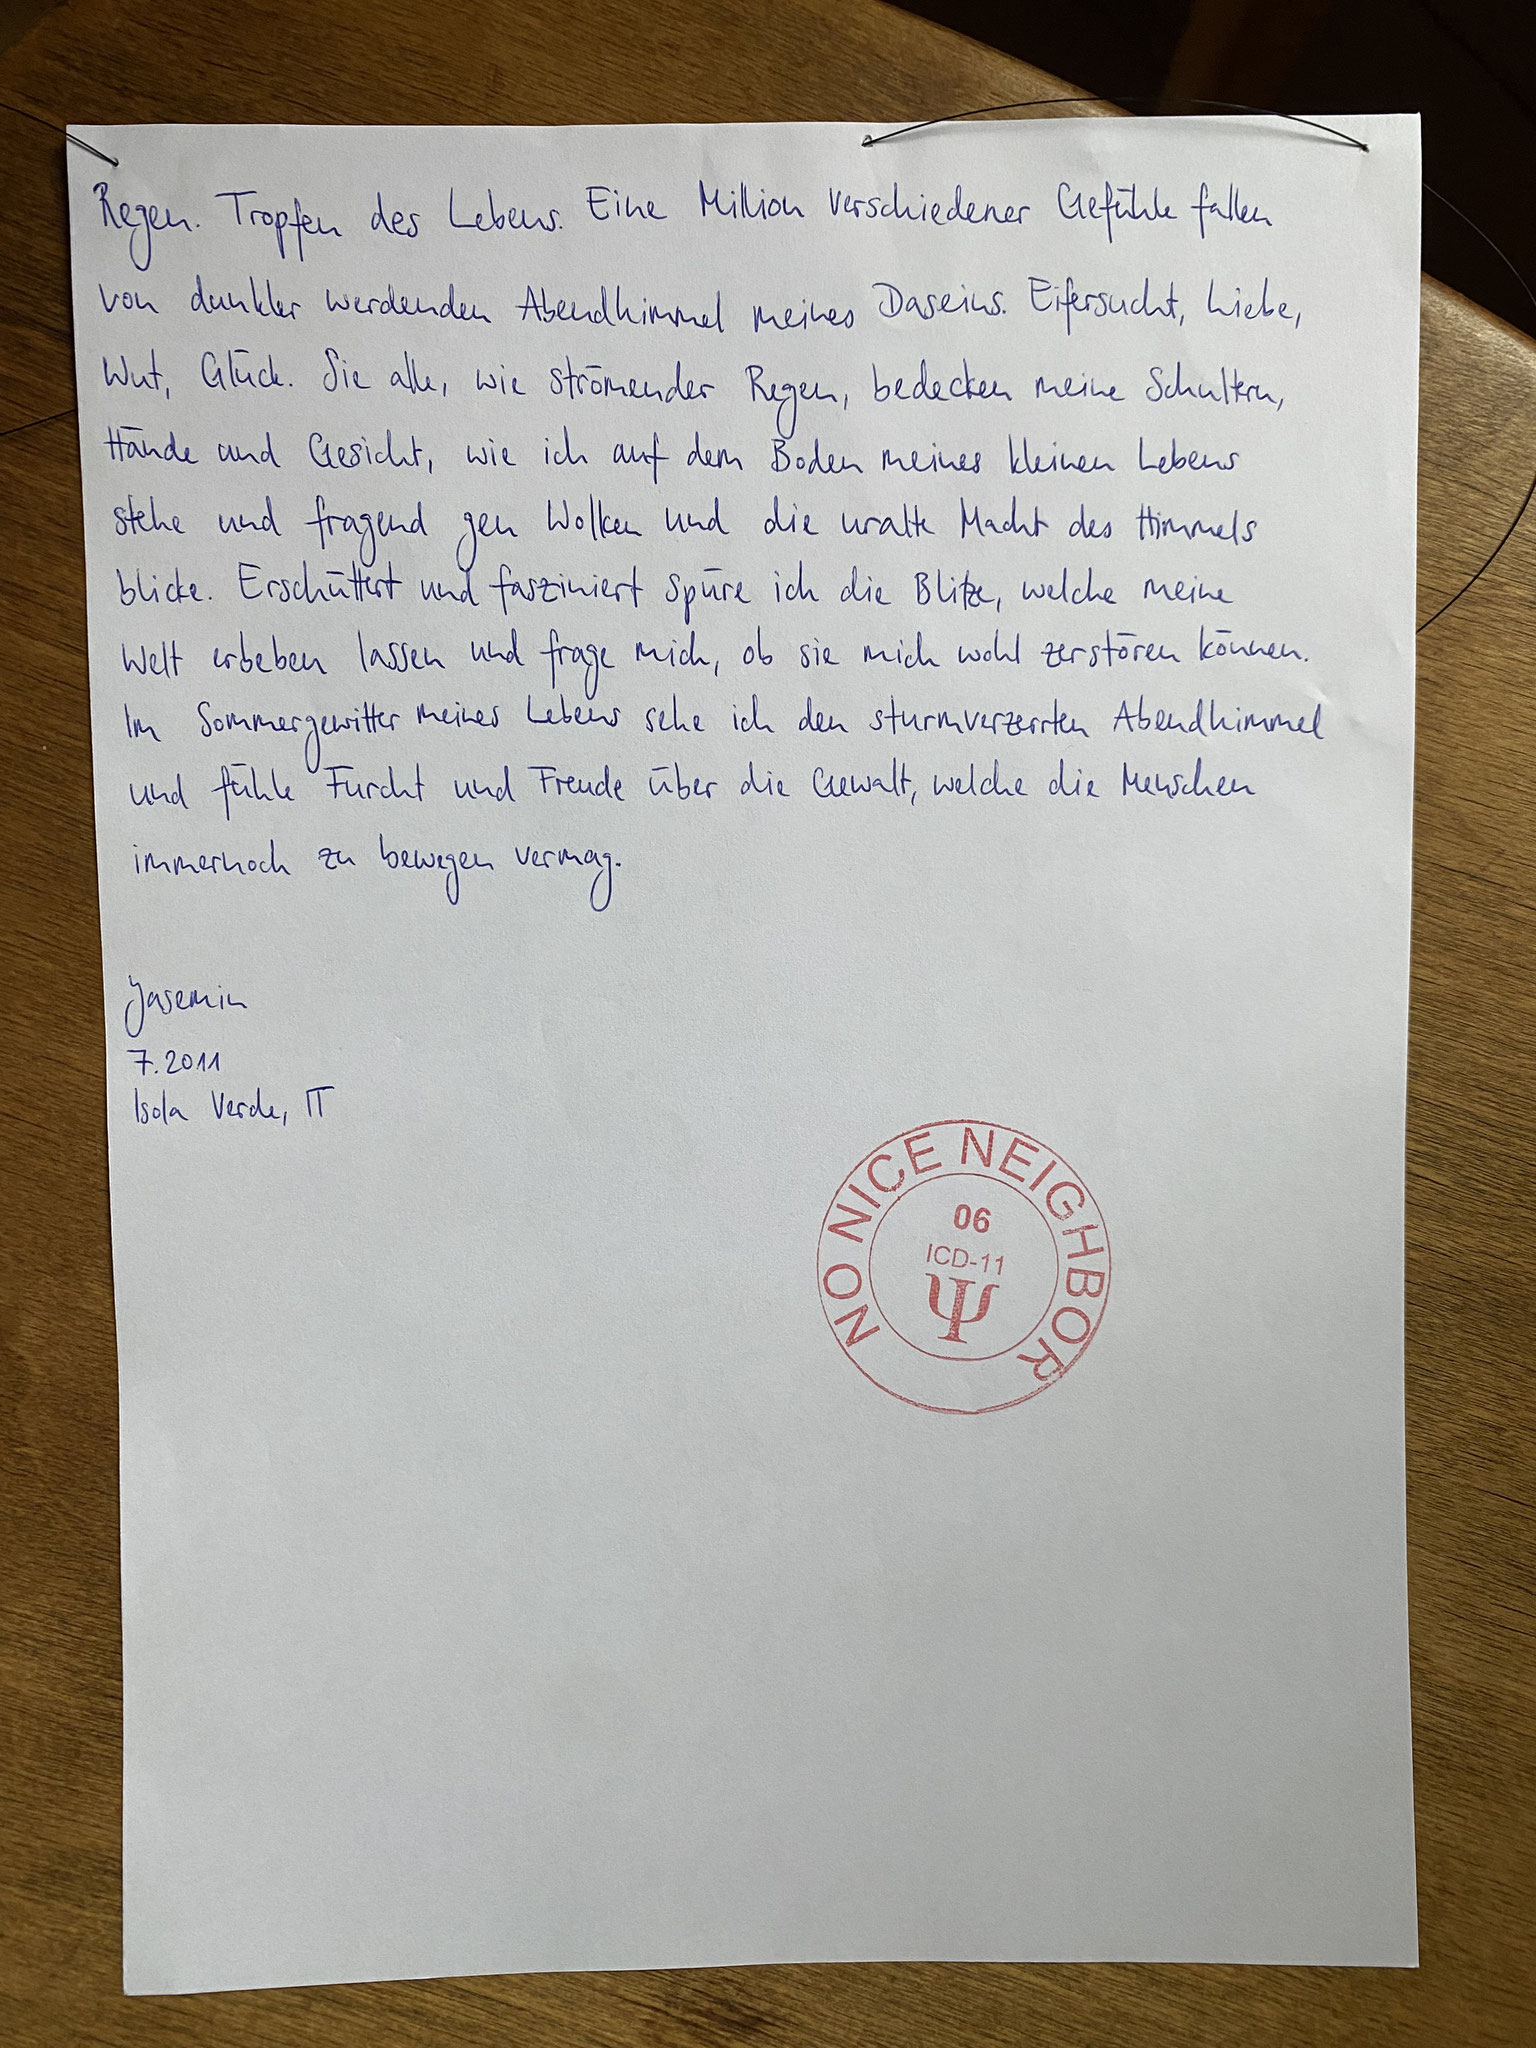 Regen. Tropfen des Lebens. Eine Million verschiedener Gefühle fallen
von dunkler werdenden Abendhimmel meines Daseins. Eifersucht, Liebe,
Wut, Glück. Sie alle, wie strömender Regen, bedecken meine Schultern,
Hände und Gesicht, wie ich auf dem Boden meines kleinen Lebens
stehe und fragend gen Wolken und die uralte Macht des Himmels
blicke. Erschüttert und fasziniert spüre ich die Blitze, welche meine
Welt erbeben lassen und frage mich, ob sie mich wohl zerstören können.
Im Sommergewitter meines Lebens sehe ich den sturmverzerrten Abendhimmel
und fühle Furcht und Freude über die Gewalt, welche die Menschen
immernoch zu bewegen vermag.
Yasemin
7.2011
Isola Verde, IT
NO NICE NEIGHBOR
06
ICD-11
Ψ